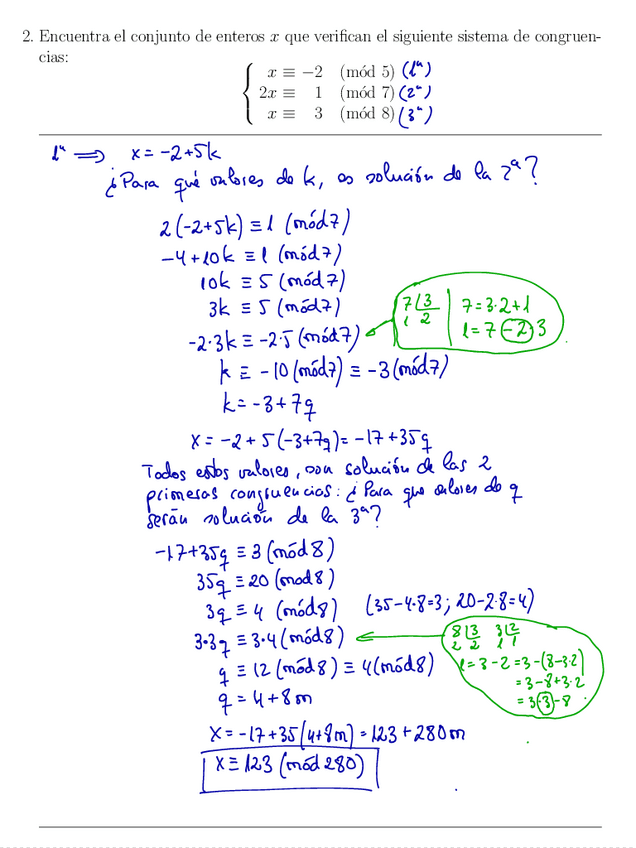 2. Encuentra el conjunto de enteros x que verifican el siguiente sistema de congruen-
cias:
x ≡ −2 (mód 5) (1ª)
2x ≡ 1 (mód 7) (2ª)
x ≡ 3 (mód 8) (3ª)
1ª ⟹ x = −2+5k
¿Para qué valores de k, es solución de la 2ª?
2(−2+5k) ≡ 1 (mód 7)
−4+10k ≡ 1 (mód 7)
10k ≡ 5 (mód 7)
3k ≡ 5 (mód 7)
7 | 3
1 2
7 = 3·2+1
1 = 7−2·3
−2·3k ≡ −2·5 (mód 7)
k ≡ −10 (mód 7) ≡ −3 (mód 7)
k = −3+7q
x = −2+5(−3+7q) = −17+35q
Todos estos valores, son solución de las 2
primeras congruencias: ¿Para que valores de q
serán solución de la 3ª?
−17+35q ≡ 3 (mód 8)
35q ≡ 20 (mod 8)
3q ≡ 4 (mód 8) (35−4·8=3; 20−2·8=4)
3·3q ≡ 3·4 (mód 8)
8 | 3 3 | 2
2 2 1 1
1 = 3−2 = 3−(8−3·2)
= 3−8+3·2
= 3·3−8
q ≡ 12 (mód 8) ≡ 4 (mód 8)
q = 4+8m
x = −17+35(4+8m) = 123+280m
x ≡ 123 (mód 280)